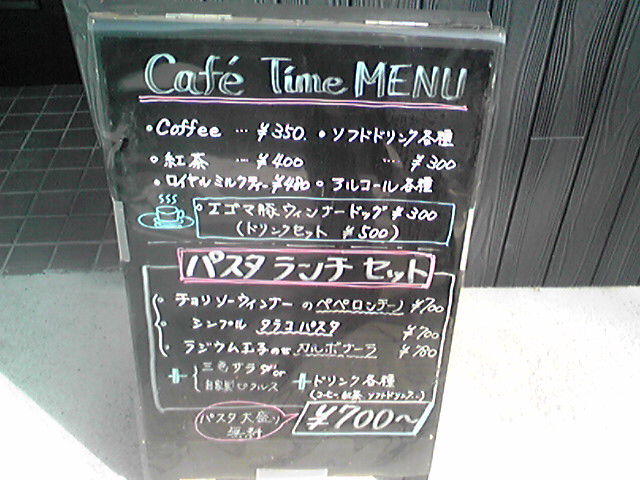 Café Time MENU
・Coffee … ¥350. ・ソフトドリンク各種
・紅茶 … ¥400 … ¥300
・ロイヤルミルクティー ¥480 ・アルコール各種
・エゴマ豚ウィンナードッグ ¥300
(ドリンクセット ¥500)
パスタランチセット
チョリソーウィンナーのペペロンチーノ ¥700
シンプルタラコパスタ ¥700
ラジウム玉子のせカルボナーラ ¥780
+ 三色サラダ or + ドリンク各種
自家製ピクルス (コーヒー、紅茶、ソフトドリンク)
パスタ大盛り ¥700〜
無料